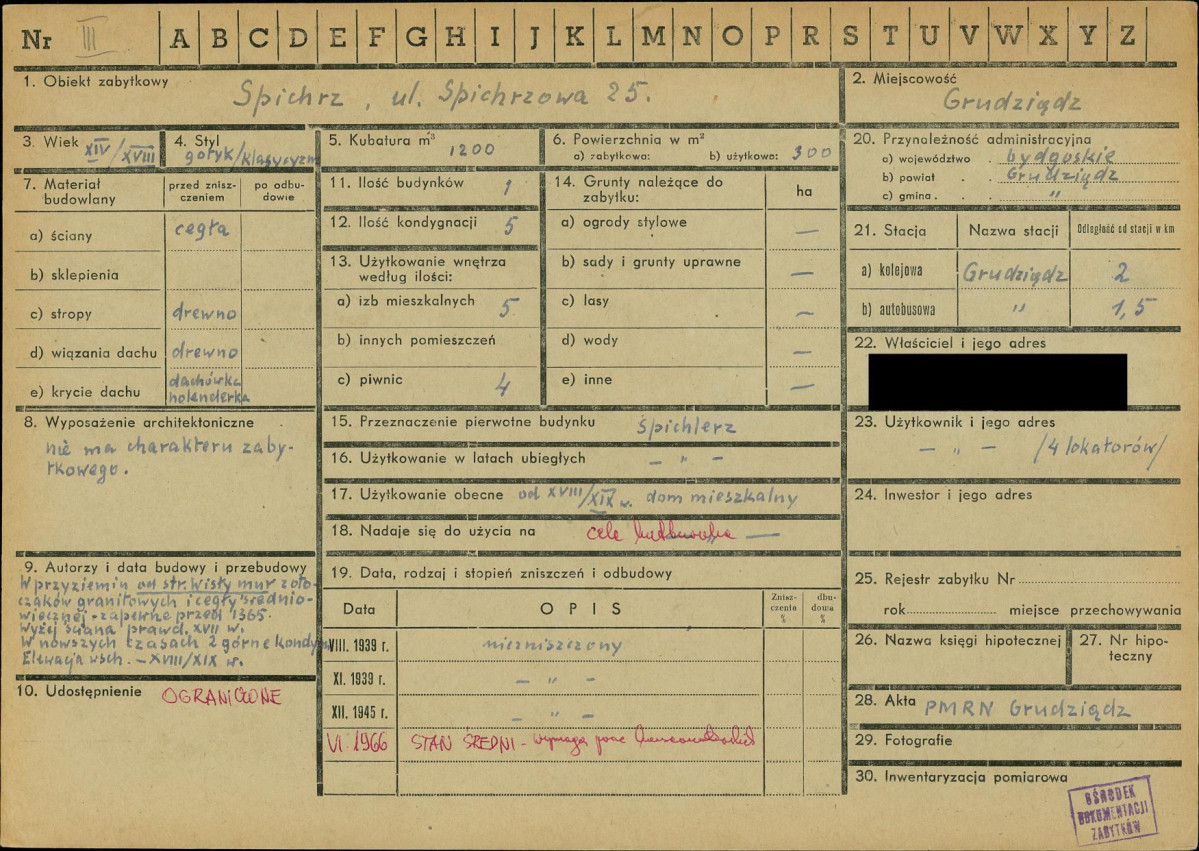 Nr III A B C D E F G H I J K L M N O P R S T U V W X Y Z
1. Obiekt zabytkowy
Spichrz, ul. Spichrzowa 25.
2. Miejscowość
Grudziądz
3. Wiek XIV/XVIII
4. Styl gotyk/klasycyzm
5. Kubatura m³ 1200
6. Powierzchnia w m²
a) zabytkowa: b) użytkowa: 300
20. Przynależność administracyjna
a) województwo . bydgoskie
b) powiat . . Grudziądz
c) gmina . . . "
7. Materiał budowlany
przed zniszczeniem
po odbudowie
a) ściany cegła
b) sklepienia
c) stropy drewno
d) wiązania dachu drewno
e) krycie dachu dachówka holenderka
8. Wyposażenie architektoniczne
nie ma charakteru zaby-
tkowego.
9. Autorzy i data budowy i przebudowy
W przyziemiu od str. Wisły mur z oto-
czaków granitowych i cegły średnio-
wiecznej - zapewne przed 1365.
Wyżej ściana prawd. XVII w.
W nowszych czasach 2 górne kondygn
Elewacja wsch. - XVIII/XIX w.
10. Udostępnienie OGRANICZONE
11. Ilość budynków 1
12. Ilość kondygnacji 5
13. Użytkowanie wnętrza
według ilości:
a) izb mieszkalnych 5
b) innych pomieszczeń
c) piwnic 4
14. Grunty należące do
zabytku: ha
a) ogrody stylowe —
b) sady i grunty uprawne —
c) lasy —
d) wody —
e) inne —
15. Przeznaczenie pierwotne budynku spichlerz
16. Użytkowanie w latach ubiegłych — " —
17. Użytkowanie obecne od XVIII/XIX w. dom mieszkalny
18. Nadaje się do użycia na cele —
19. Data, rodzaj i stopień zniszczeń i odbudowy
Data OPIS Zniszczenia % dbudowa %
VIII. 1939 r. niezniszczony
XI. 1939 r. — " —
XII. 1945 r. — " —
VI. 1966 STAN ŚREDNI - wymaga prac
21. Stacja Nazwa stacji Odległość od stacji w km
a) kolejowa Grudziądz 2
b) autobusowa " 1,5
22. Właściciel i jego adres
23. Użytkownik i jego adres
— " — /4 lokatorów/
24. Inwestor i jego adres
25. Rejestr zabytku Nr
rok miejsce przechowywania
26. Nazwa księgi hipotecznej
27. Nr hipo-
teczny
28. Akta PMRN Grudziądz
29. Fotografie
30. Inwentaryzacja pomiarowa
OŚRODEK
DOKUMENTACJI
ZABYTKÓW